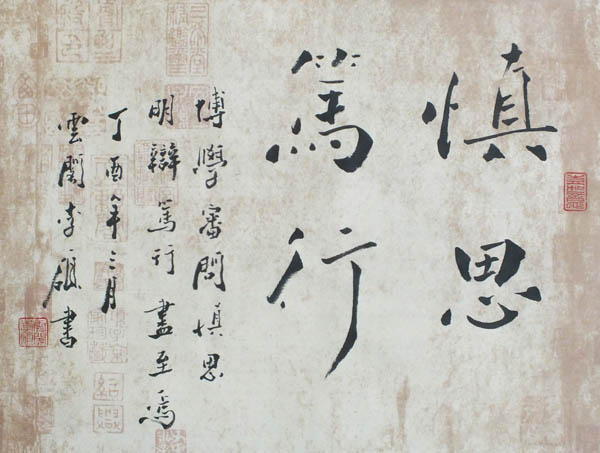 慎思
篤行
博學審問慎思
明辯篤行盡至焉
丁酉年三月
雲閣李書